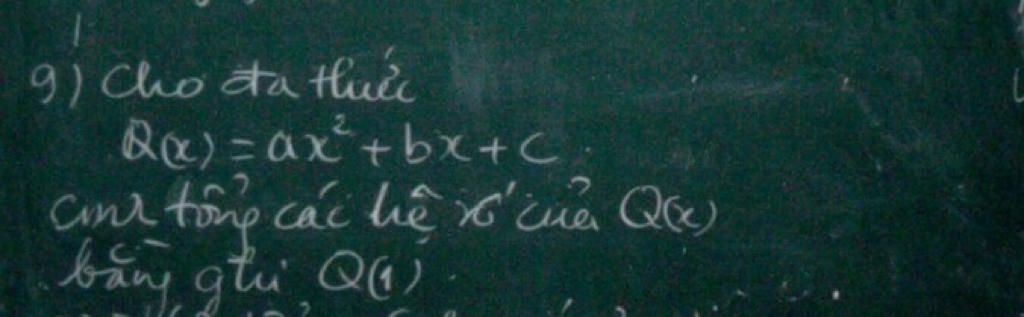 9) Cho đa thức
Q(x) = ax² + bx + c.
cmr tổng các hệ số của Q(x)
bằng gtrị Q(1).